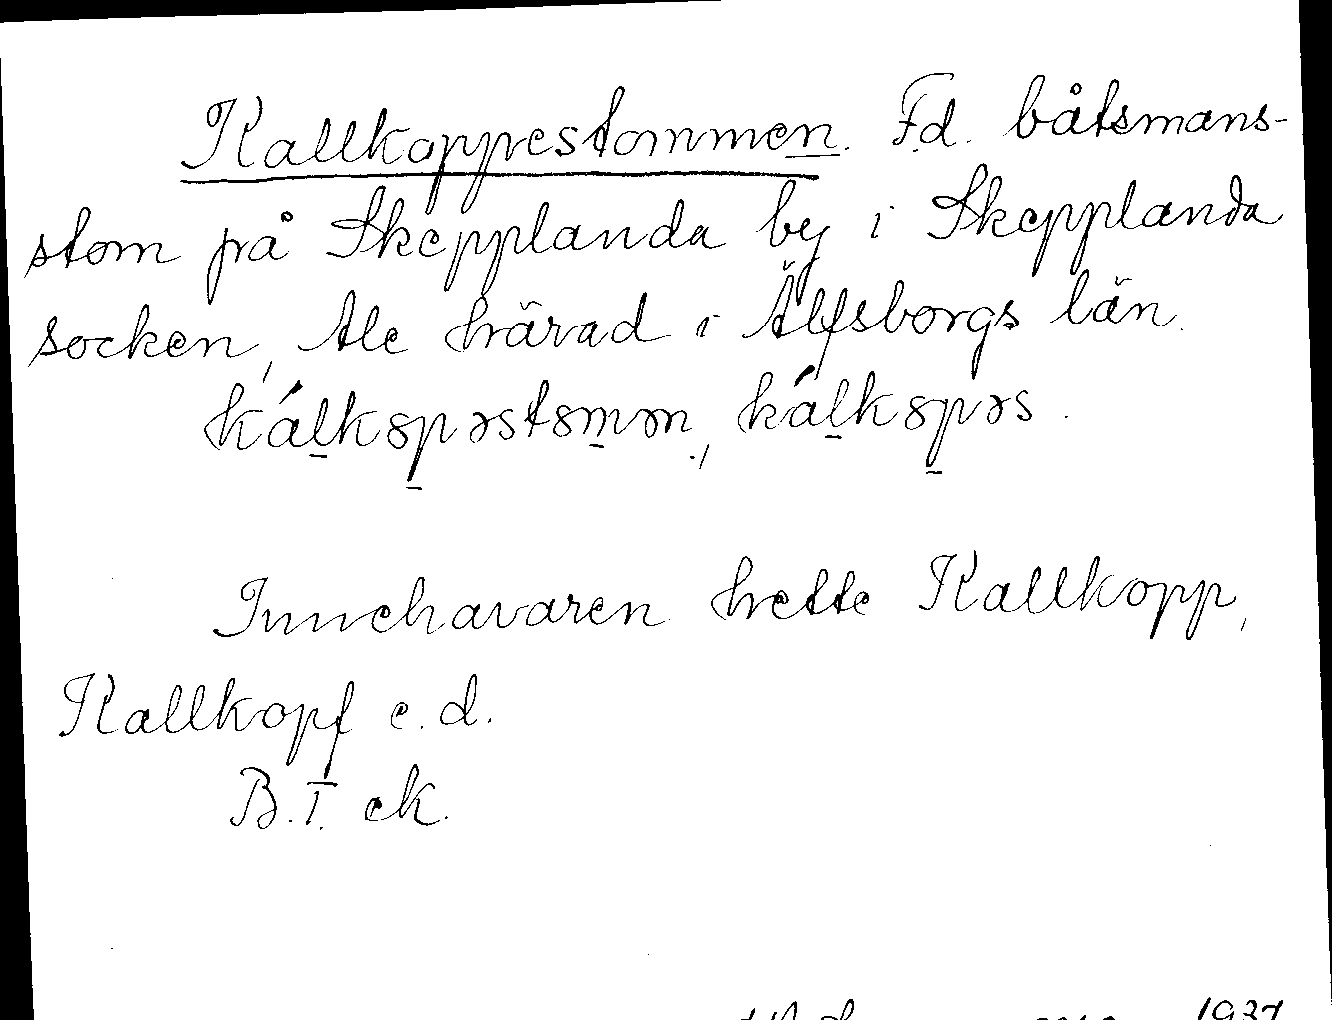 Kallkoppestommen. F.d. båtsmans-
stom på Skepplanda by i Skepplanda
socken, Ale härad i Älfsborgs län.
kálkɷpəstɷmən, kálkɷpəs.
Innehavaren hette Kallkopp,
Kallkopf e.d.
B.I. ek.
1937